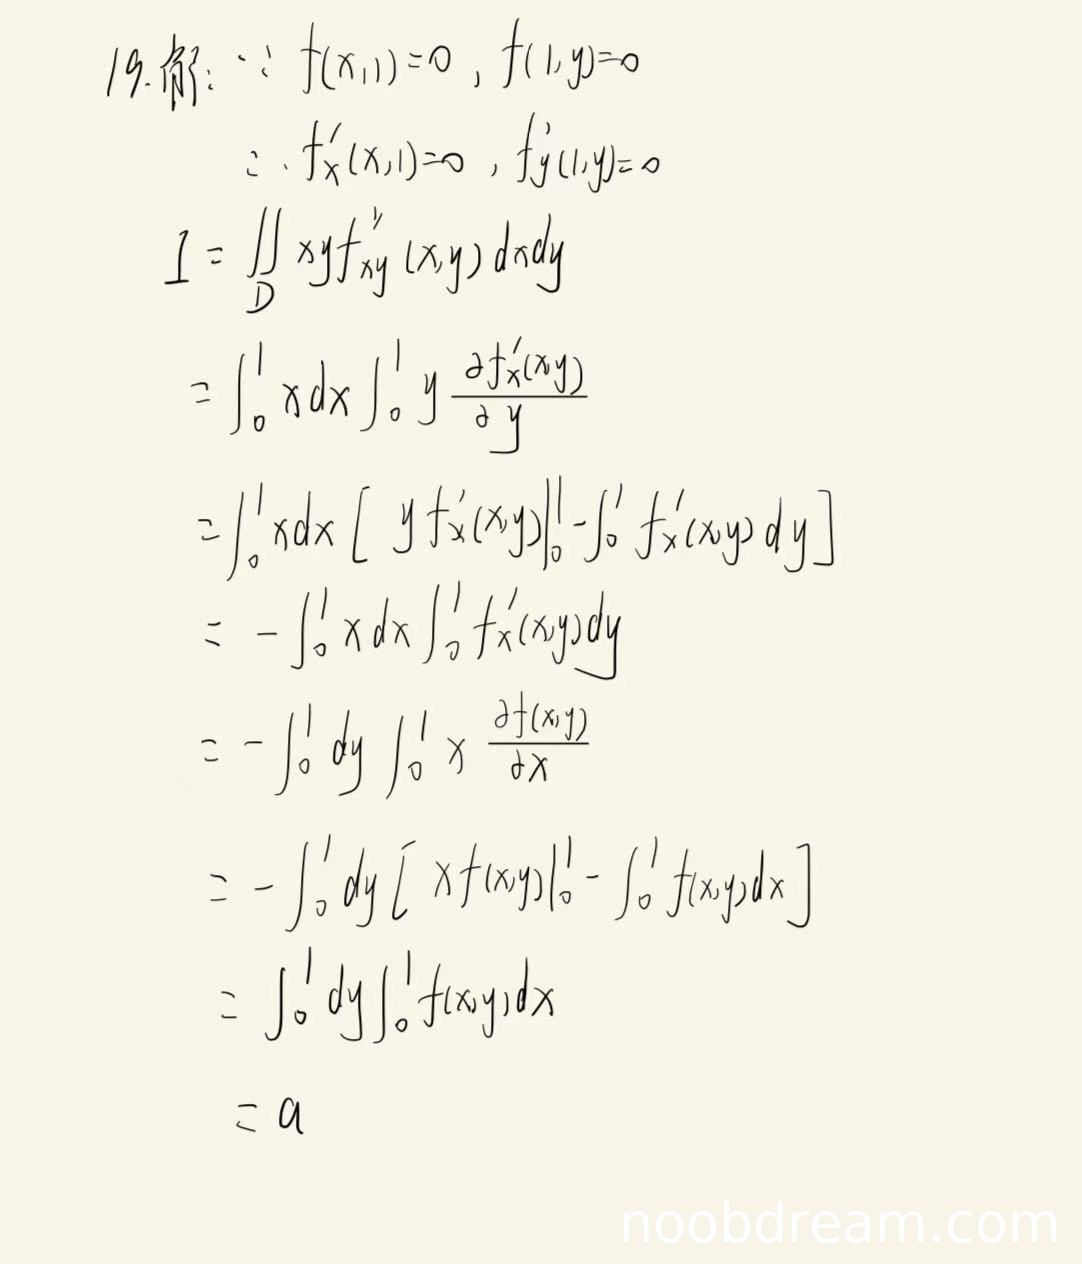 19.解: ∵ f(x,1)=0 , f(1,y)=0
∴ f'x(x,1)=0 , f'y(1,y)=0
I = ∬_D xy f''xy (x,y) dxdy
= ∫₀¹ x dx ∫₀¹ y ∂f'x(x,y)/∂y
= ∫₀¹ x dx [ y f'x(x,y)|₀¹ - ∫₀¹ f'x(x,y) dy ]
= - ∫₀¹ x dx ∫₀¹ f'x(x,y) dy
= - ∫₀¹ dy ∫₀¹ x ∂f(x,y)/∂x
= - ∫₀¹ dy [ x f(x,y)|₀¹ - ∫₀¹ f(x,y) dx ]
= ∫₀¹ dy ∫₀¹ f(x,y) dx
= a
noobdream.com